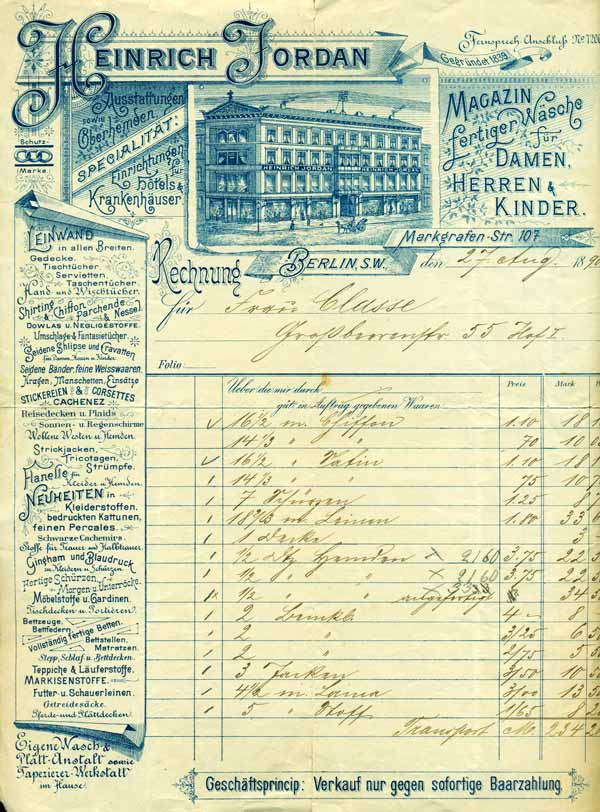 HEINRICH JORDAN
Fernsprech-Anschluß No 7306
Gegründet 1839
Ausstattungen
SOWIE
Oberhemden.
SPECIALITÄT:
Einrichtungen
für
Hôtels &
Krankenhäuser
Schutz-
Marke.
HEINRICH JORDAN
MAGAZIN
fertiger Wäsche
für
DAMEN,
HERREN &
KINDER.
Markgrafen-Str. 107
BERLIN, S.W.
den 27 Aug. 1890
Rechnung
für Frau Classe
Großbeerenstr. 55 Hof I.
Folio:
LEINWAND
in allen Breiten.
Gedecke.
Tischtücher
Servietten
Taschentücher
Hand- und Wischtücher.
Shirting Chiffon Parchende
& Nessel.
DOWLAS u. NEGLIGÉSTOFFE.
Umschlage & Fantasietücher.
Seidene Shlipse und Cravatten
für Damen, Herren u. Kinder.
Seidene Bänder, feine Weisswaaren,
Kragen, Manschetten, Einsätze
STICKEREIEN & CORSETTES
CACHENEZ
Reisedecken u. Plaids
Sonnen- u. Regenschirme
Wollene Westen u. Hemden.
Strickjacken,
Tricotagen,
Strümpfe.
Flanelle für
Kleider u. Hemden.
NEUHEITEN in
Kleiderstoffen,
bedruckten Kattunen,
feinen Percales.
Schwarze Cachemirs.
Stoffe für Trauer und Halbtrauer.
Gingham und Blaudruck
zu Kleidern u. Schürzen.
Fertige Schürzen,
Morgen u. Unterröcke.
Möbelstoffe u. Gardinen,
Tischdecken u. Portièren.
Bettzeuge,
Bettfedern,
Vollständig fertige Betten.
Bettstellen,
Matratzen.
Stepp, Schlaf u. Bettdecken.
Teppiche & Läuferstoffe.
MARKISENSTOFFE.
Futter- u. Schauerleinen.
Getreidesäcke.
Pferde- und Plättdecken.
Eigene Wasch- &
Platt-Anstalt sowie
Tapezierer-Werkstatt
im Hause.
Ueber die mir durch
gütl. in Auftrag gegebenen Waaren. Preis Mark
16½ m. Chiffon 1.10 18 1
14 7/3 " " 70 10
16½ " Satin 1.10 18 1
14 7/3 " " 75 10 7
7 Schürzen 1.25 8
m. Leinen 1.80 33
1 Decke 3
½ Dtz Hemden × 21 60 3.75 22
½ " " × 21 60 3.75 22
½ " " 34
2 4 – 8
2 " 3/25 6
2 " 2/75 5
3 Jacken 3/50 10
m. Lama 3/00 13
5 " Stoff 1/65 8
Transport M. 234
Geschäftsprincip: Verkauf nur gegen sofortige Baarzahlung.